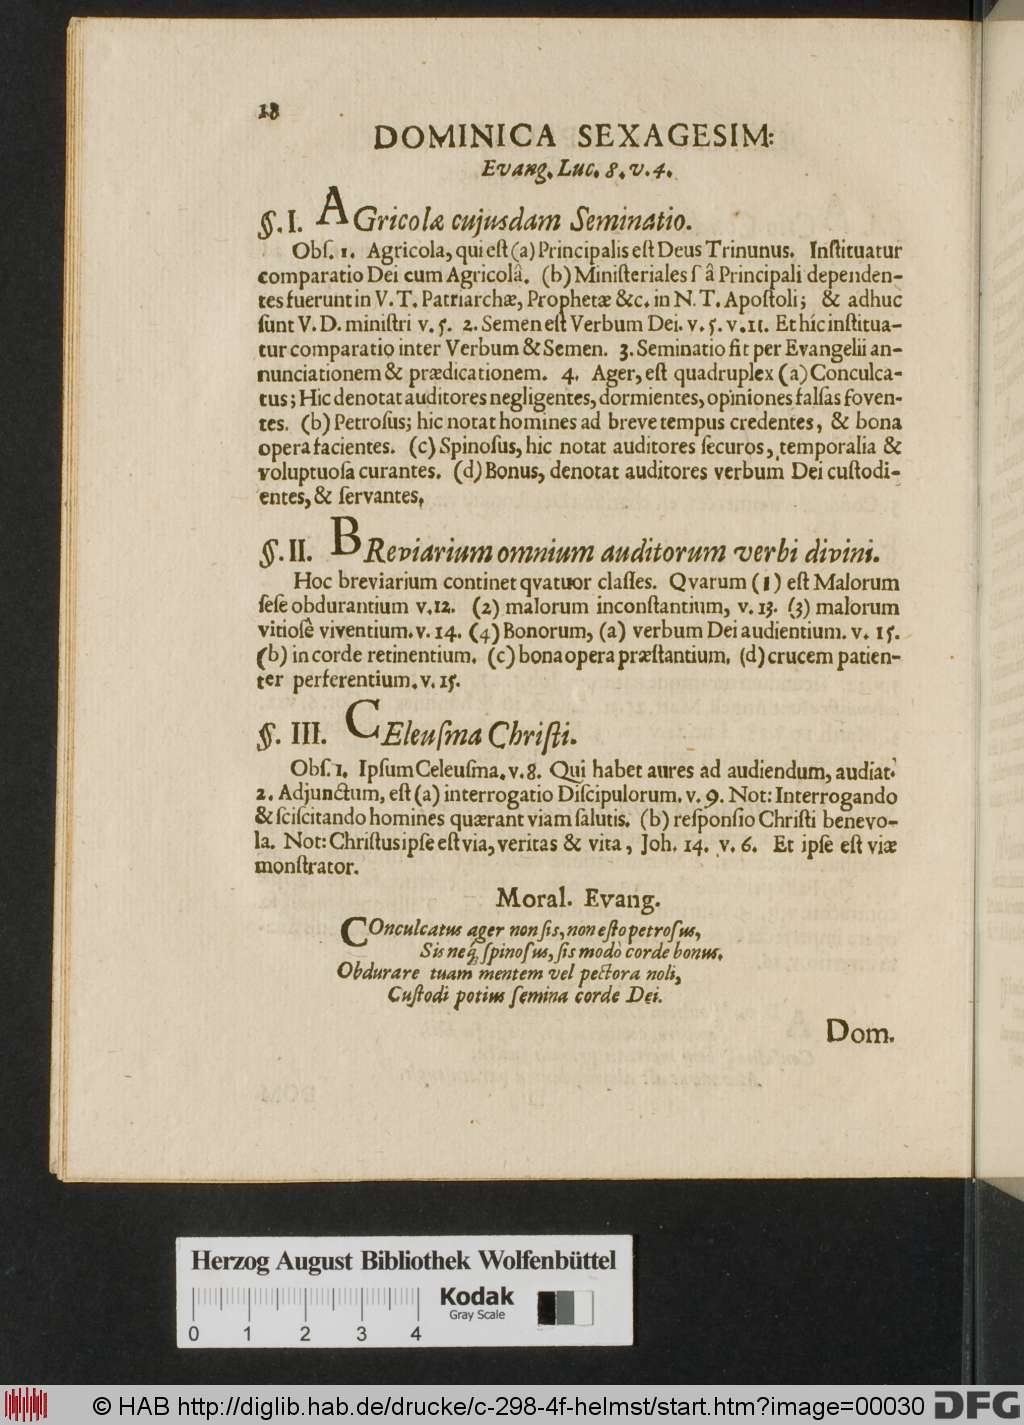 18
DOMINICA SEXAGESIM:
Evang. Luc. 8. v. 4.
§. I. AGricolæ cujusdam Seminatio.
Obſ. 1. Agricola, qui eſt (a) Principalis eſt Deus Trinunus. Inſtituatur
comparatio Dei cum Agricolâ. (b) Miniſteriales ſ â Principali dependen-
tes fuerunt in V. T. Patriarchæ, Prophetæ &c. in N. T. Apoſtoli; & adhuc
ſunt V. D. miniſtri v. 5. 2. Semen eſt Verbum Dei. v. 5. v. 11. Et hîc inſtitua-
tur comparatio inter Verbum & Semen. 3. Seminatio fit per Evangelii an-
nunciationem & prædicationem. 4. Ager, eſt quadruplex (a) Conculca-
tus; Hic denotat auditores negligentes, dormientes, opiniones falſas foven-
tes. (b) Petroſus; hic notat homines ad breve tempus credentes, & bona
opera facientes. (c) Spinoſus, hic notat auditores ſecuros, temporalia &
voluptuoſa curantes. (d) Bonus, denotat auditores verbum Dei cuſtodi-
entes, & ſervantes.
§. II. BReviarium omnium auditorum verbi divini.
Hoc breviarium continet qvatuor claſſes. Qvarum (1) eſt Malorum
ſeſe obdurantium v. 12. (2) malorum inconſtantium, v. 13. (3) malorum
vitioſê viventium. v. 14. (4) Bonorum, (a) verbum Dei audientium. v. 15.
(b) in corde retinentium. (c) bona opera præſtantium. (d) crucem patien-
ter perferentium. v. 15.
§. III. CEleuſma Chriſti.
Obſ. 1. Ipſum Celeuſma. v. 8. Qui habet aures ad audiendum, audiat.
2. Adjunctum, eſt (a) interrogatio Diſcipulorum. v. 9. Not: Interrogando
& ſciſcitando homines quærant viam ſalutis. (b) reſponſio Chriſti benevo-
la. Not: Chriſtus ipſe eſt via, veritas & vita, Joh. 14. v. 6. Et ipſe eſt viæ
monſtrator.
Moral. Evang.
COnculcatus ager non ſis, non eſto petroſus,
Sis neq́; ſpinoſus, ſis modò corde bonus.
Obdurare tuam mentem vel pectora noli,
Cuſtodi potius ſemina corde Dei.
Dom.
Herzog August Bibliothek Wolfenbüttel
Kodak
Gray Scale
0 1 2 3 4
© HAB http://diglib.hab.de/drucke/c-298-4f-helmst/start.htm?image=00030
DFG